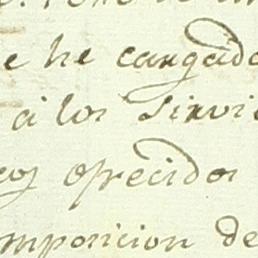 e he cargado
á los Sirvi
cos ofrecidos
mposicion de